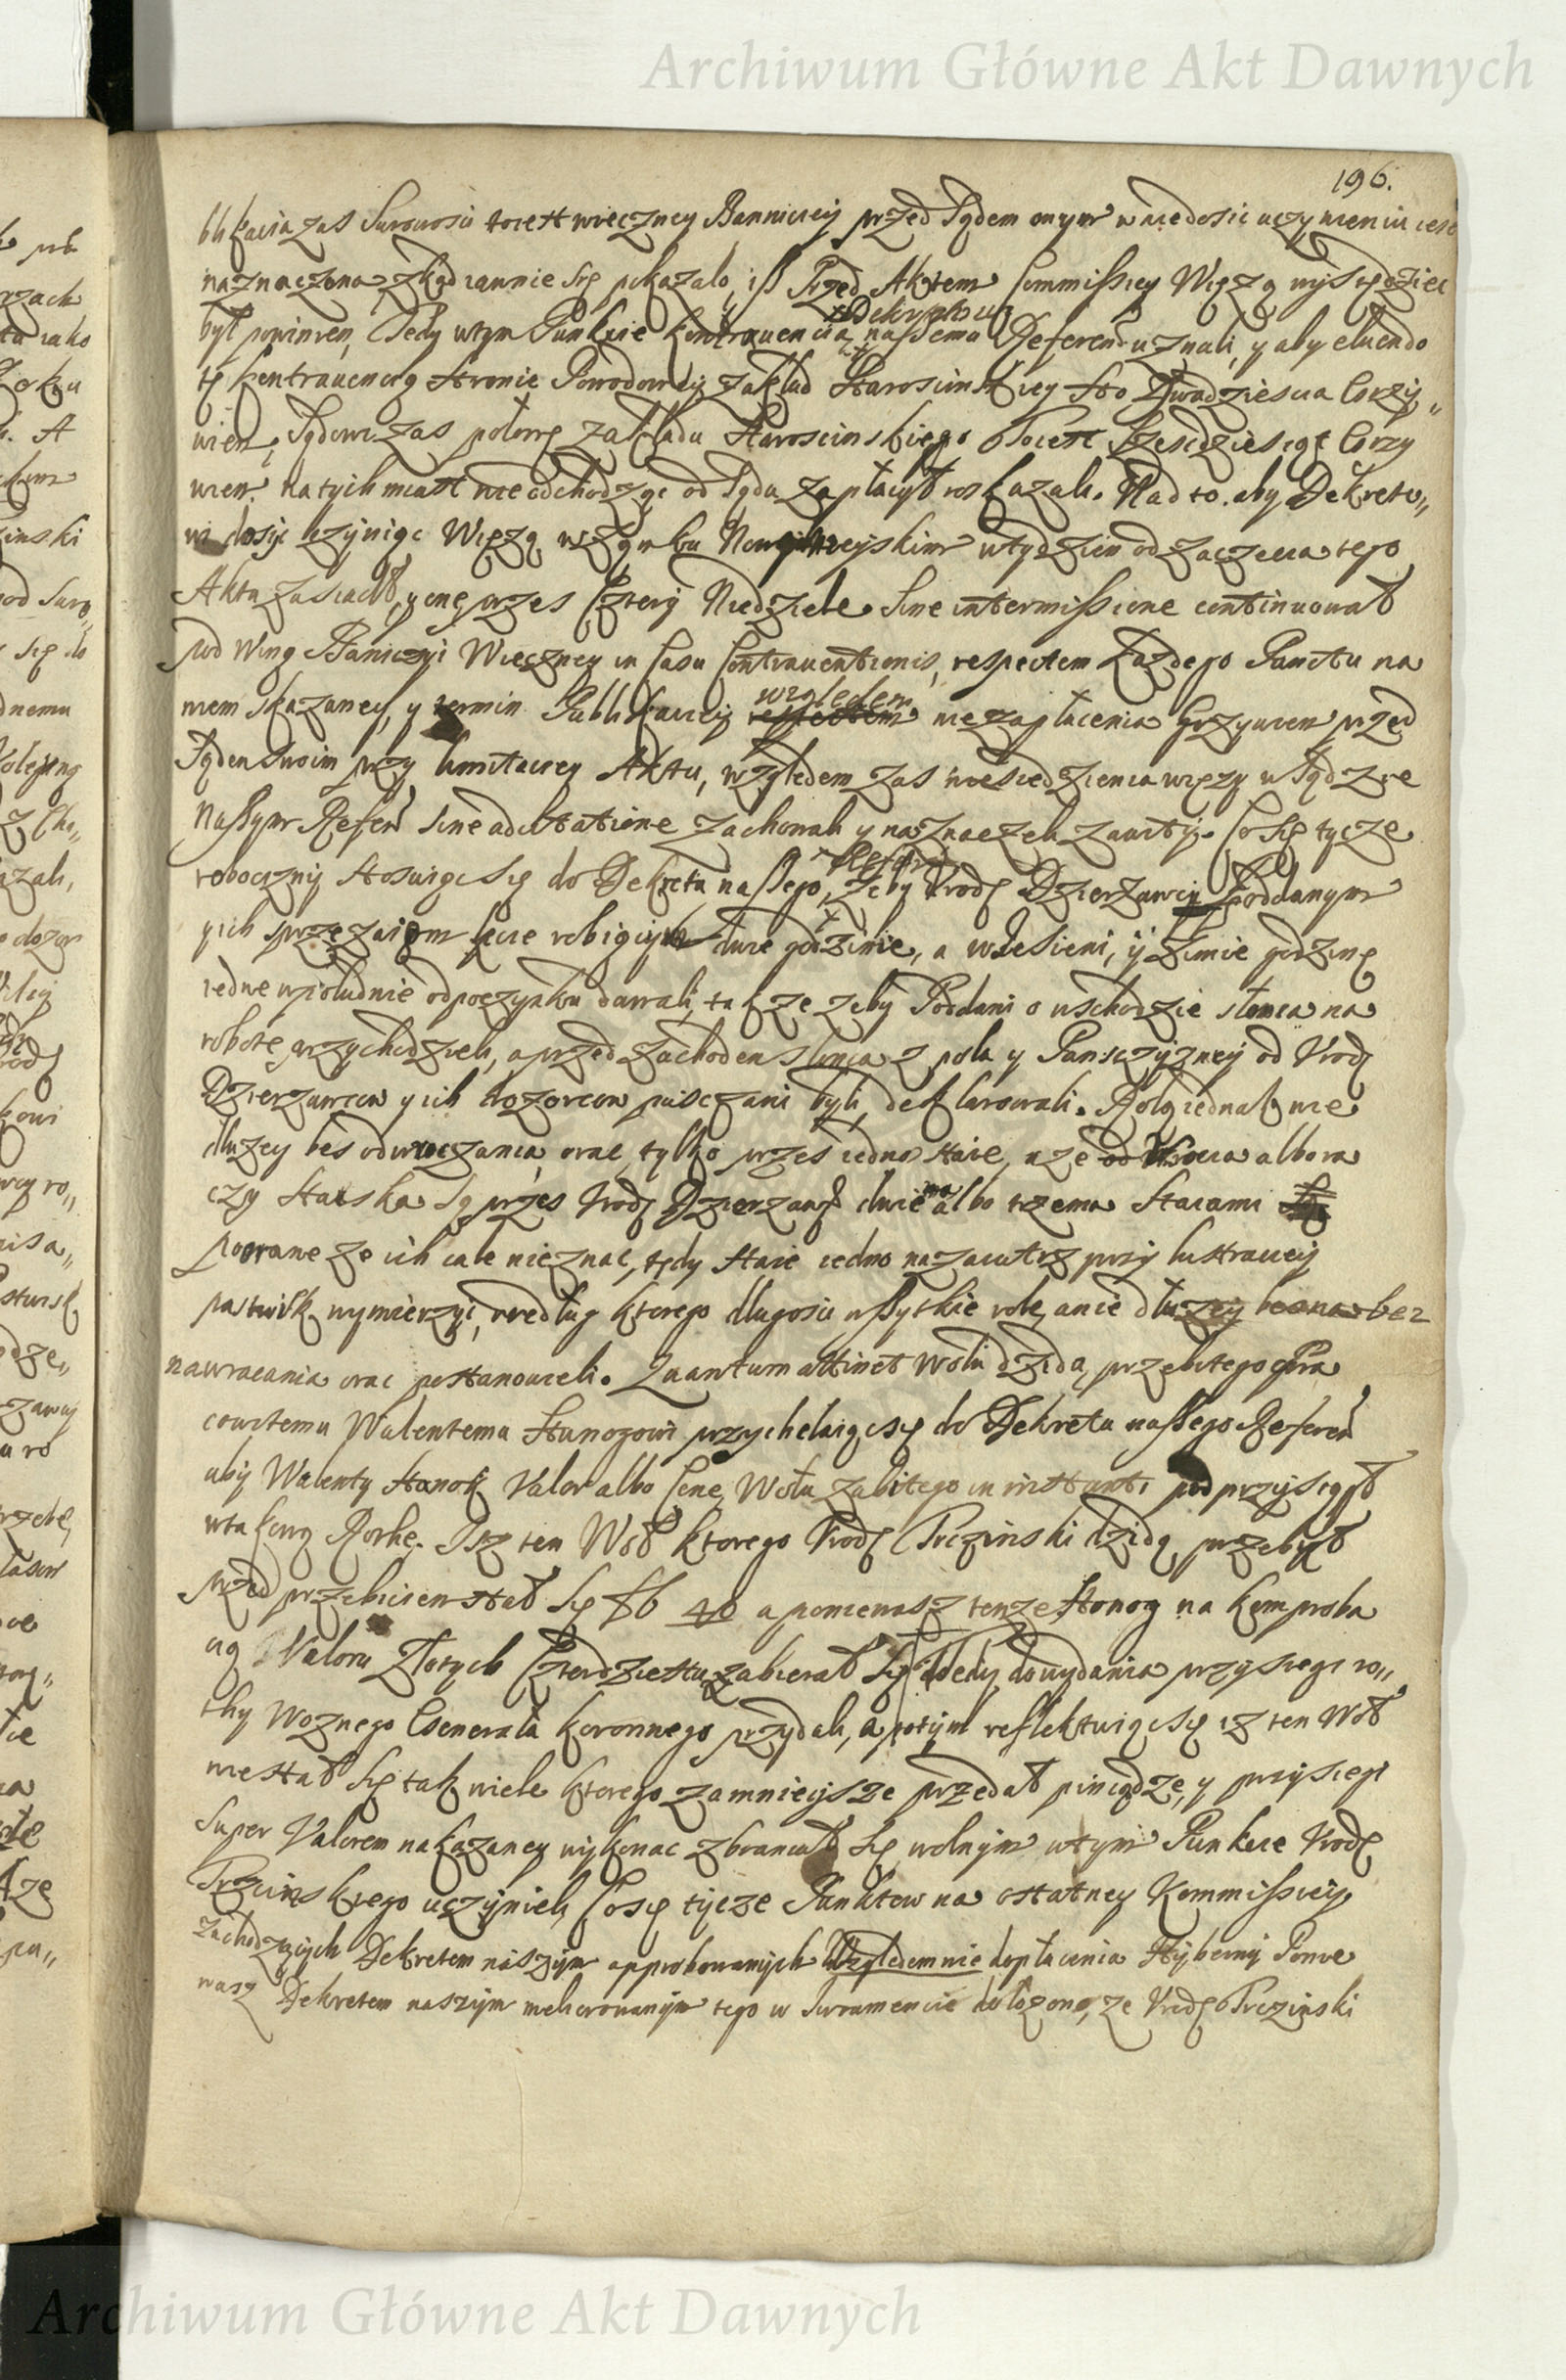 Archiwum Główne Akt Dawnych
196.
blikacia zas Surowosci iest wieczney Banniciey przed Sądem onym w niedosic uczynieniu iest
naznaczona, zkąd iawnie się pokazało, iss Przed Aktem Commissiey Wiezą wysiedziec
był powinien, Tedy wtym Punkcie Kontrauencią Dekretowi nassemu Referend uznali, y aby eluendo
tę kontrauencyą stronie Powodowey zakład Starosciński sto Dwadziescia Grzy„
wien, Sądowi zas połowę zakładu Staroscinskiego to iest Szescdziesiąt Grzy
wien natychmiast nie odchodząc od Sądu zapłacył roskazali. Nad to aby Dekreto„
wi dosyc czyniąc Wiezą w Zamku Nowomieyskim w tydzien od zaczecia tego
Aktu zasiadł, y onę przes Cztery Niedziele Sine intermissione continuował
pod winą Baniczyi Wieczney in Casu Contrauentionis, respectem kazdego Punctu na
niem skazaney, y termin Publikaciey względem niezapłacenia Grzywien przed
Sądem swoim przy limitaciey Aktu, względem zas niesiedzienia wiezy w Sądzie
Nassym Referen sine adcitatione zachowali y naznaczeli zawity. Co się tycze
robocizny stosuiąc się do Dekretu nassego Referen, żeby Urodz Dzierzawcy Poddanym
y ich sprzęzaiom lecie robiącym dwie godzinie, a w Iesieni, y Zimie godzinę
iednę w południe odpoczynku dawali, takze zeby Poddani o wschodzie słonca na
robotę przychodzieli, a przed zachodem słonca z pola y Panszczyzney od Urodz
Dzierzawcow y ich dozorcow pusczani byli, deklarowali. Rolą iednak nie
dłuzey bes odwroczania orac, tylko przes iedno staie, a ze
czy Staiska są przes Urodz Dzierzawc dwiema albo trzema Staiami
poorane ze ich cale nieznac, tedy staie iedno nazaiutrz przy lustraciey
pastwisk wymierzyc, wedlug ktorego długosci wssytkie role, a nie dłuzey bez
nawracania orac postanowieli. Quantum attinet Wołu dzidą przebitego Pra
cowitemu Walentemu Stanogowi przychelaiąc się do Dekretu nassego Referen
aby Walenty Stonog Valor albo Cene Wołu zabitego in instanti pod przysięgął
wtakową Rothę. Isz ten Woł ktorego Urodz Trczinski dzidą przebił
przed przebiciem stał się fl 40 a poniewasz tenze Stonog na komproba
cią Waloru Złotych Czterdziestu zabierał się, Tedy do wydania przysięgi ro„
thy Woznego Generała koronnego przydali, a potym reflektuiąc się iz ten Woł
niestał się tak wiele ktorego zamnieysze przedał pieniądze, y przysięgi
Super Valorem nakazaney wykonac zbraniał się wolnym w tym Punkcie Urodz
Trczinskiego uczynieli, Co się tycze Punktow na ostatney Kommissiey
zachodzących Dekretem naszym approbowanych Względem nie dopłacenia Hyberny Ponie
wasz Dekretem naszym meliorowanym tego w Iuramencie dołozono, ze Urodz Trczinski
Archiwum Główne Akt Dawnych